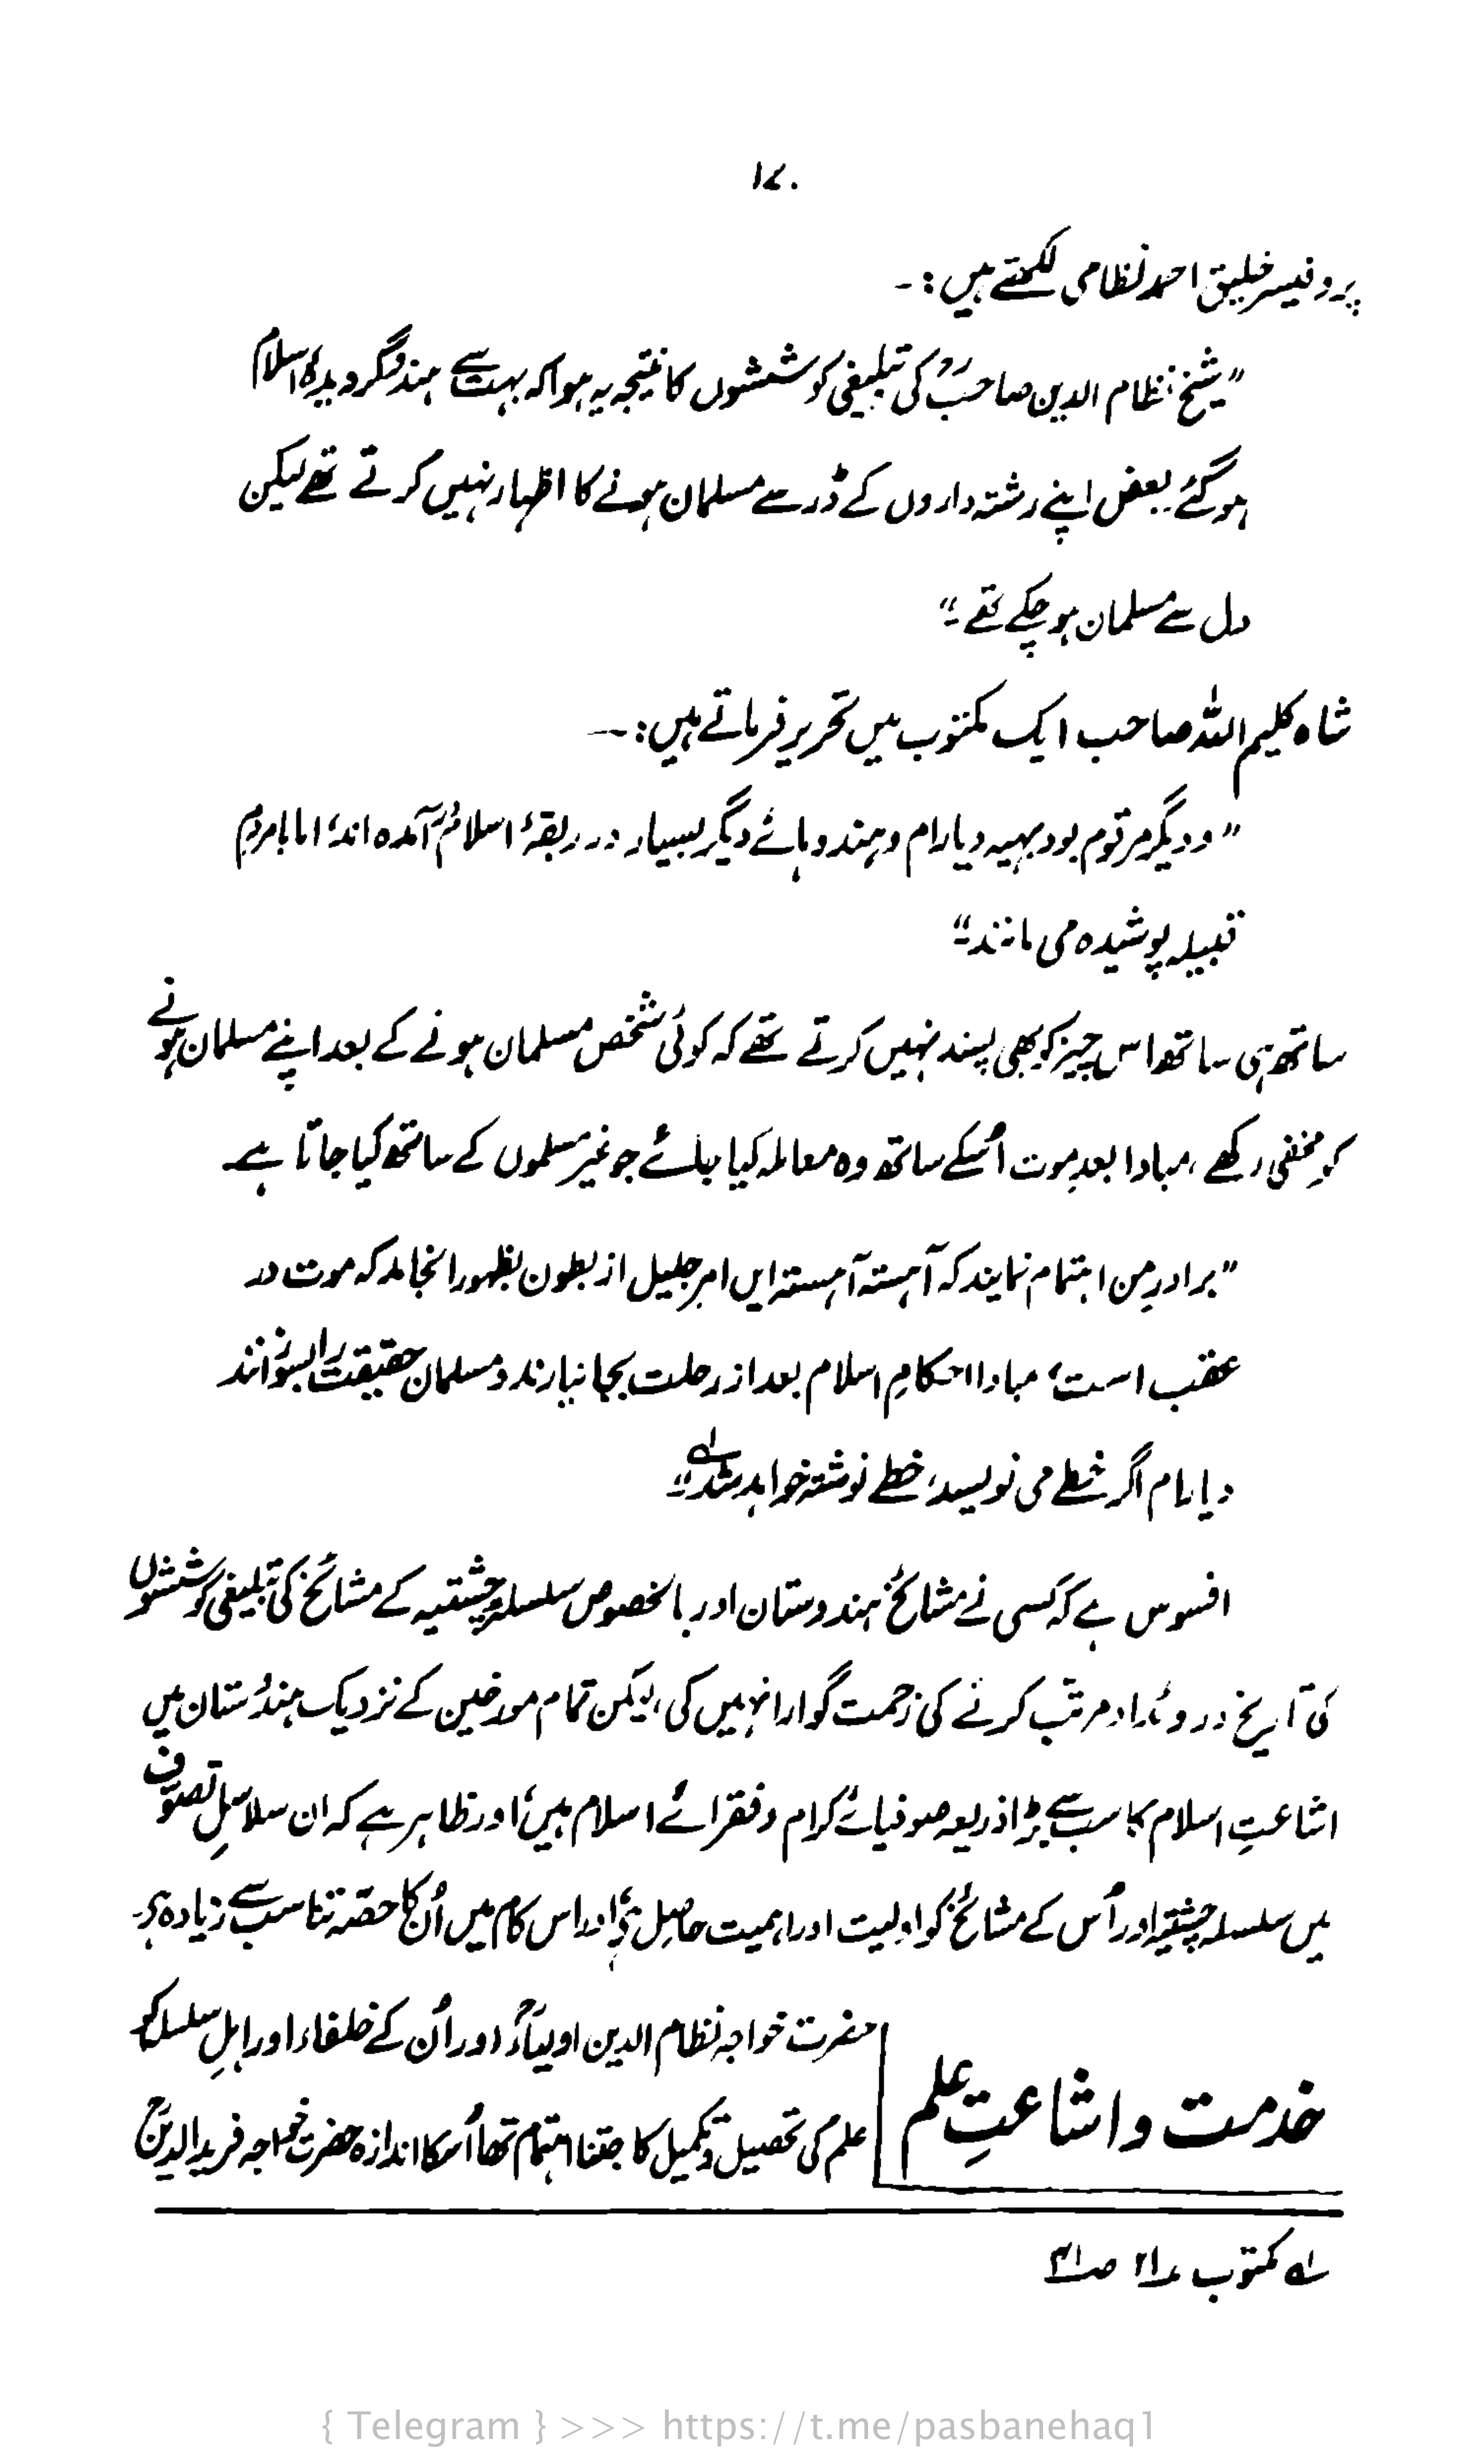 ۱۷۰
پروفیسر خلیق احمد نظامی لکھتے ہیں :۔
”شیخ نظام الدین صاحبؒ کی تبلیغی کوششوں کا نتیجہ یہ ہوا کہ بہت سے ہندو گرویدۂ اسلام
ہو گئے۔ بعض اپنے رشتہ داروں کے ڈر سے مسلمان ہونے کا اظہار نہیں کرتے تھے لیکن
دل سے مسلمان ہو چکے تھے۔“
شاہ کلیم اللہ صاحب ایک مکتوب میں تحریر فرماتے ہیں :۔
”و دیگر مرقوم بود بہیہ دیارام و ہندو ہائے دیگر بسیار در ربقۂ اسلام در آمدہ اند، اما با مردمِ
قبیلہ پوشیدہ می مانند۔“
ساتھ ہی ساتھ اس چیز کو بھی پسند نہیں کرتے تھے کہ کوئی شخص مسلمان ہونے کے بعد اپنے مسلمان ہونے
کو مخفی رکھے، مبادا بعدِ موت اُسکے ساتھ وہ معاملہ کیا جائے جو غیر مسلموں کے ساتھ کیا جاتا ہے۔
”برادرِ من اہتمام نمایند کہ آہستہ آہستہ ایں امرِ جلیل از بطون بظہور انجامد کہ موت در
عقب است، مبادا احکامِ اسلام بعد از رحلت بجا نیارند و مسلمان حقیقت را بسوزانند
دیارام اگر خطے می نویسد، خطے نوشتہ خواہد شد۔“ لہ
افسوس ہے کہ کسی نے مشائخِ ہندوستان اور بالخصوص سلسلہ چشتیہ کے مشائخ کی تبلیغی کوششوں
کی تاریخ و روئداد مرتب کرنے کی زحمت گوارا نہیں کی، لیکن تمام مورخین کے نزدیک ہندوستان میں
اشاعتِ اسلام کا سب سے بڑا ذریعہ صوفیائے کرام و فقرائے اسلام ہیں، اور ظاہر ہے کہ ان سلاسلِ تصوف
میں سلسلہ چشتیہ اور اُس کے مشائخ کو اولیت اور اہمیت حاصل ہے، اور اس کام میں اُن کا حصّہ تناسب سے زیادہ ہے۔
خدمت و اشاعتِ علم
حضرت خواجہ نظام الدین اولیاءؒ اور اُن کے خلفاء اور اہلِ سلسلہ کو
علم کی تحصیل و تکمیل کا جتنا اہتمام تھا اُس کا اندازہ حضرت خواجہ فرید الدینؒ
لہ مکتوب ۲۱ ص۱۴
{ Telegram } >>> https://t.me/pasbanehaq1